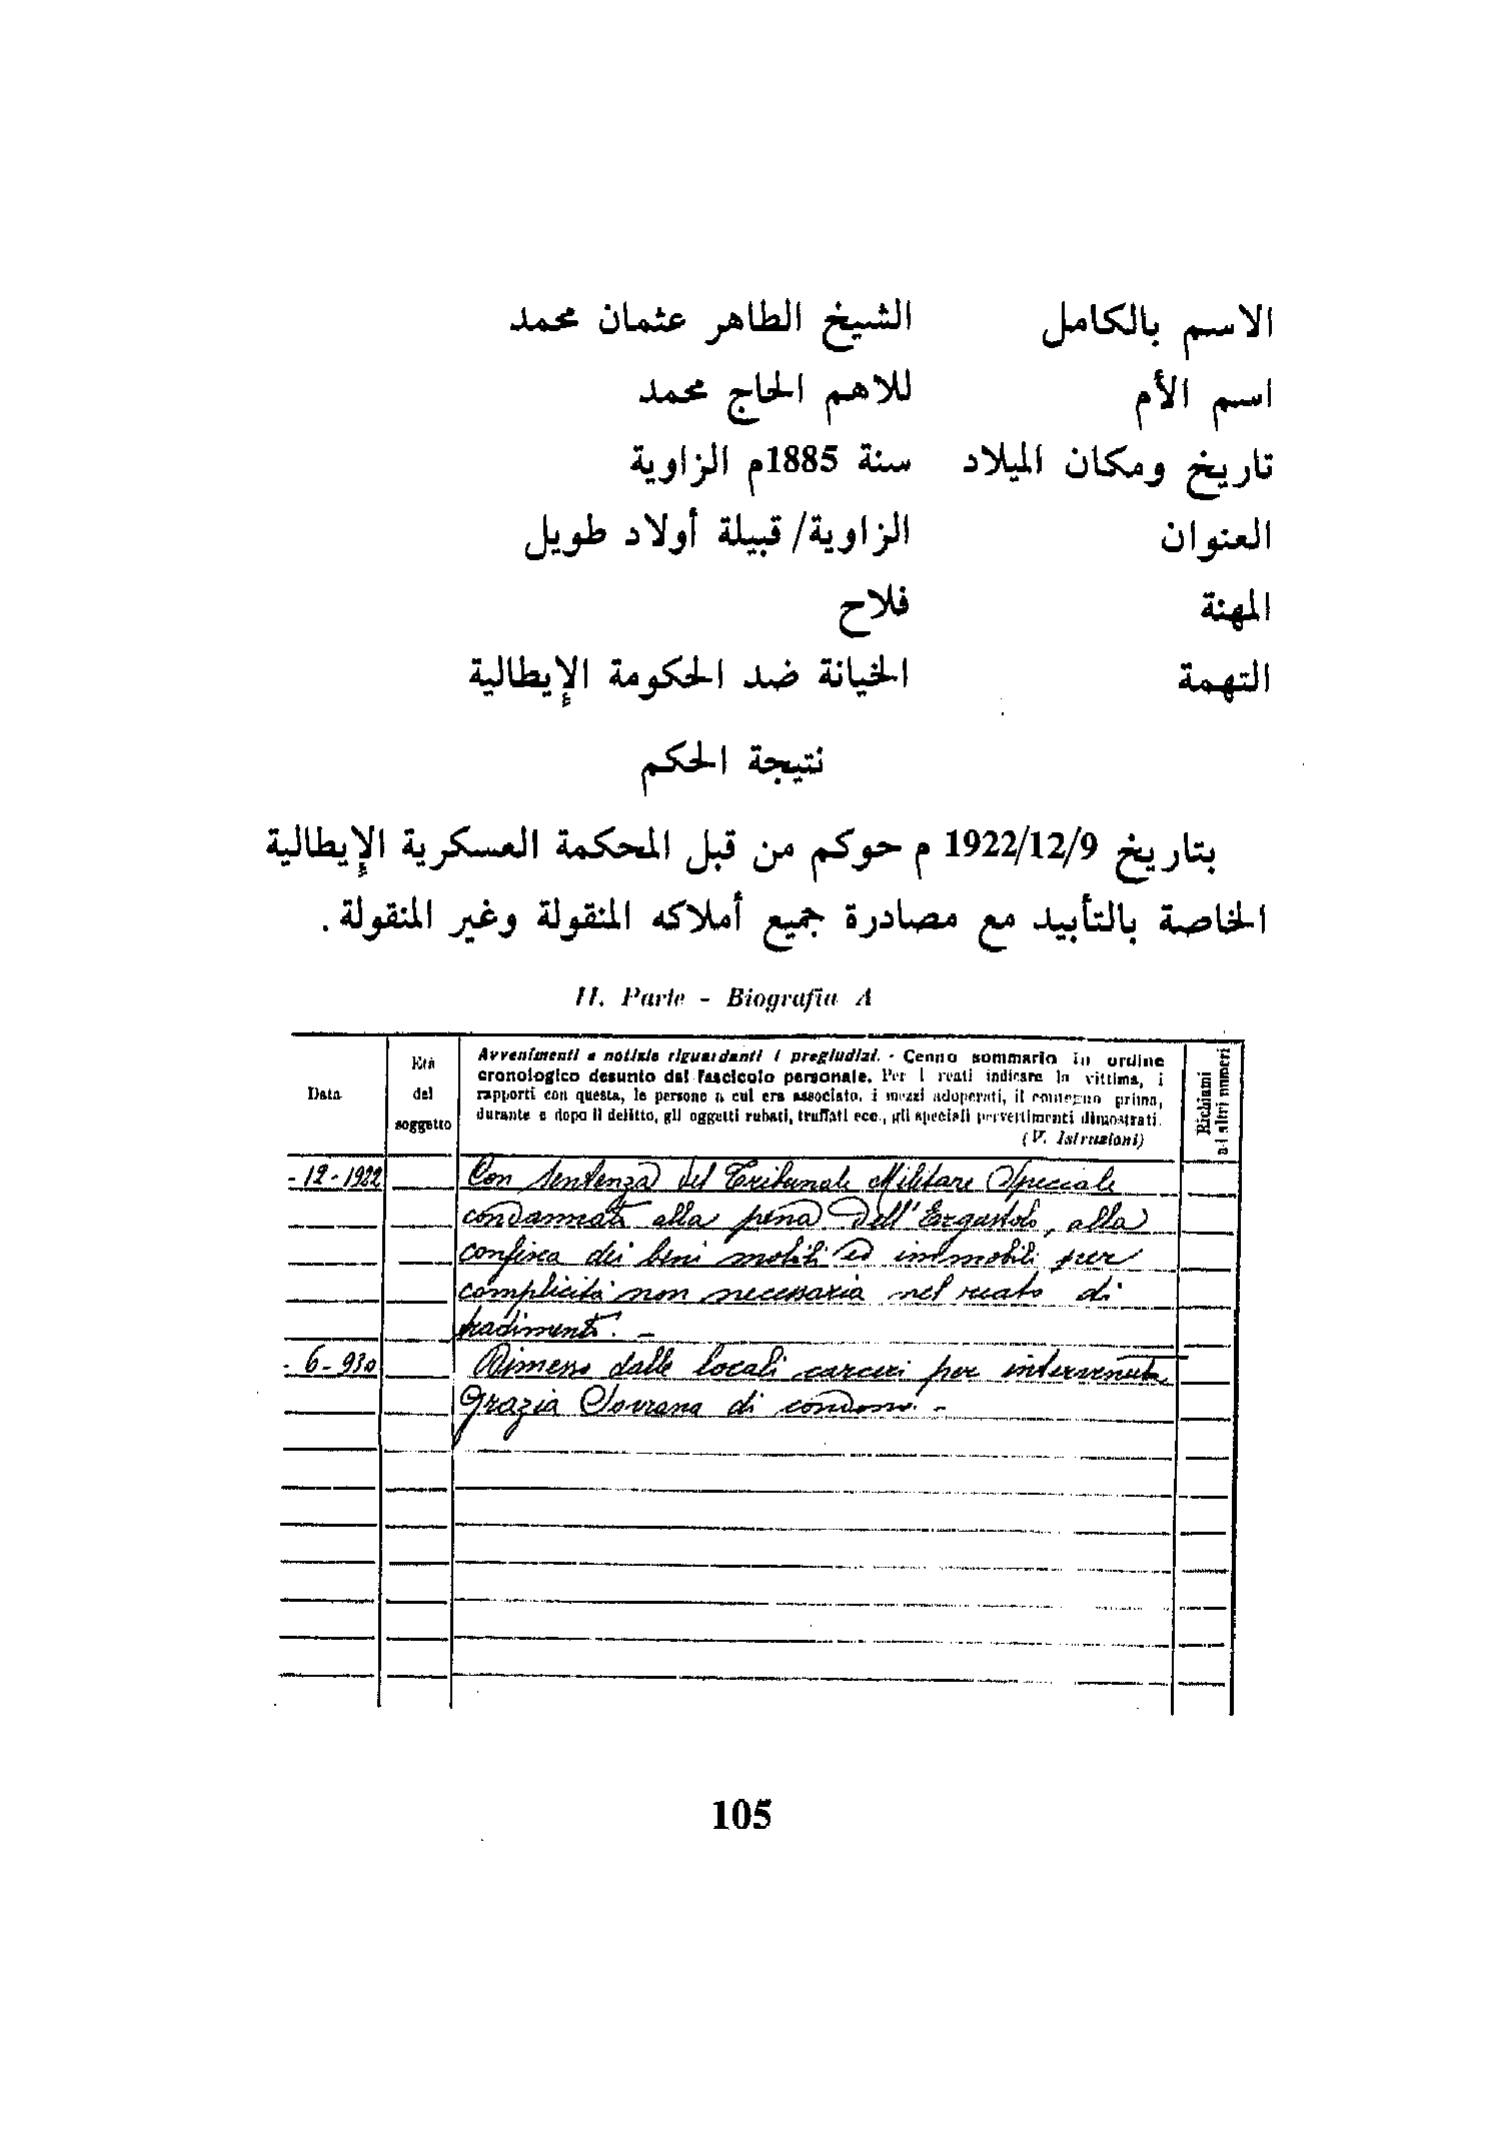 الاسم بالكامل الشيخ الطاهر عثمان محمد
اسم الأم للاهم الحاج محمد
تاريخ ومكان الميلاد سنة 1885م الزاوية
العنوان الزاوية/ قبيلة أولاد طويل
المهنة فلاح
التهمة الخيانة ضد الحكومة الإيطالية
نتيجة الحكم
بتاريخ 1922/12/9 م حوكم من قبل المحكمة العسكرية الإيطالية
الخاصة بالتأبيد مع مصادرة جميع أملاكه المنقولة وغير المنقولة.
II. Parte - Biografia A
Data
Età
del
soggetto
Avvenimenti e notizie riguardanti i pregiudizi. - Cenno sommario in ordine
cronologico desunto dal fascicolo personale. Per i reati indicare la vittima, i
rapporti con questa, le persone a cui era associato, i mezzi adoperati, il contegno prima,
durante e dopo il delitto, gli oggetti rubati, truffati ecc., gli speciali pervertimenti dimostrati.
(V. Istruzioni)
Richiami
ad altri numeri
- 12 - 1922 Con sentenza del Tribunale Militare Speciale
condannato alla pena dell'Ergastolo, alla
confisca dei beni mobili ed immobili per
complicità non necessaria nel reato di
tradimento. -
- 6 - 930 Rimesso dalle locali carceri per intervenuta
Grazia Sovrana di condono. -
105